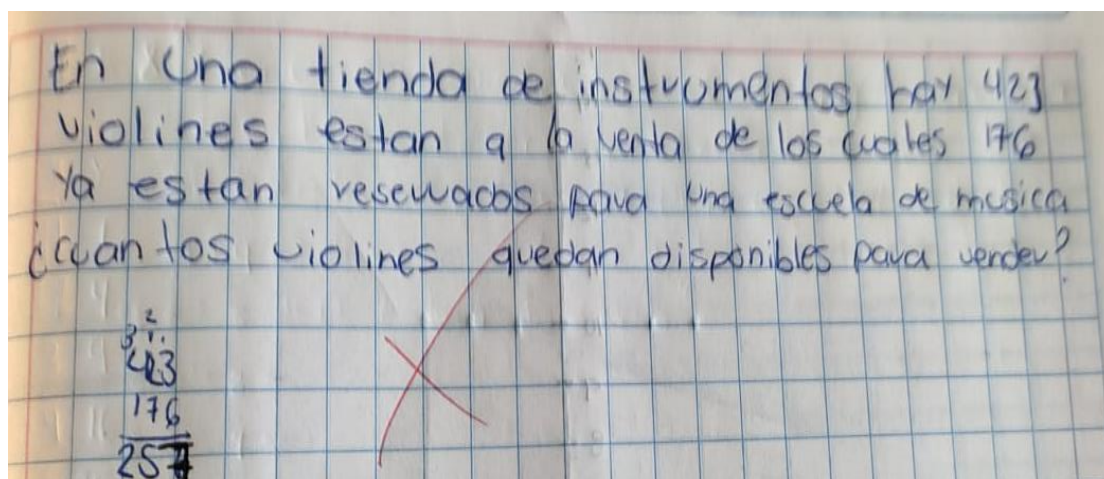 En una tienda de instrumentos hay 423
violines estan a la venta de los cuales 176
ya estan reservados para una escuela de musica
¿cuantos violines quedan disponibles para vender?
3 2 1
423
176
257